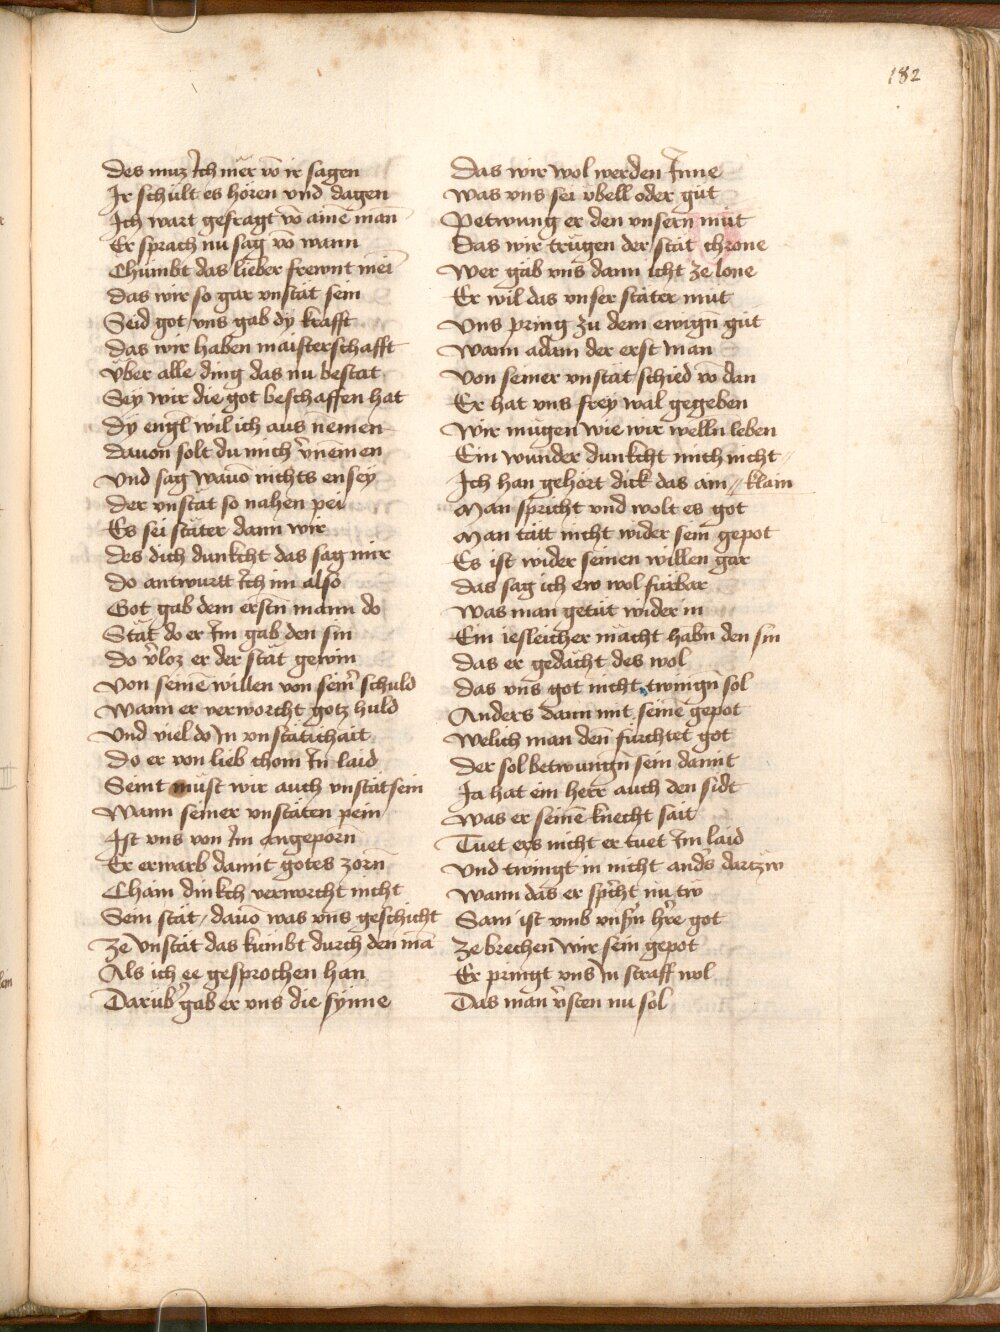 182
Des muz Ich mer vō ir sagen
Ir schült es hören vnd dagen
Ich wart gefragt vō aine man
Er sprach nu sag vō wann
Chümbt das lieber frewnt mei
Das wir so gar vnstät sein
Seid got vns gab dy krafft
Das wir haben maisterschafft
Über alle ding das nu bestat
Sey wir die got beschaffen hat
Dy engl wil ich aus nemen
Dauon solt du mich v̉nemen
Vnd sag wauō nichts ensey
Der vnstät so nahen pei
Es sei stäter dann wir
Des dich dunkcht das sag mir
Do antwurtt Ich im also
Got gab dem erstn mann do
Stät do er Im gab den sin
Do v̉loz er der stät gewin
Von seinē willen von seinr̉ schuld
Wann er verworcht gotz huld
Vnd viel do In vnstätichait
Do er von lieb chom In laid
Seint müst wir auch vnstät sein
Wann seiner vnstäten pein
Ist vns von Im angeporn
Er erwarb damit gotes zorn
Cham dinkch verworcht nicht
Sein stät / dauō was vns geschicht
Ze Vnstät das kumbt durch den mā
Als ich ee gesprochen han
Darüb̉ gab er vns die synne
Das wir wol werden Inne
Was vns sei vbell oder gut
Petwung er den vnsern müt
Das wir trügen der stät chrone
Wer gäb vns dann icht ze lone
Er wil das vnser stäter mut
Vns pring zu dem ewign gut
Wann adam der erst man
Von seiner vnstät schied vō dan
Er hat vns frey wal gegeben
Wir mügen wie wir welln leben
Ein wunder dunkcht mich nicht //
Ich han gehört dick das am // klain
Man spricht vnd wolt es got
Man tätt nicht wider sein gepot
Es ist wider seinen willen gar
Das sag ich ew wol fürbar
Was man getüt wider in
Ein iesleicher mächt habn den sin
Das er gedächt des wol
Das vns got nicht twingn sol
Anders dann mit seinē gepot
Welich man den fürchtet got
Der sol betwungn sein damit
Ja hat ein herr auch den sidt
Was er seinē knecht sait
Tuet ers nicht er tuet Im laid
Vnd twingt in nicht and̉s dartzw
Wann das er sp̉cht nu tw
Sam ist vmb vnsn̉ hr̉e got
Ze brechen wir sein gepot
Er pringt vns In straff wol
Das man v̉sten nu sol